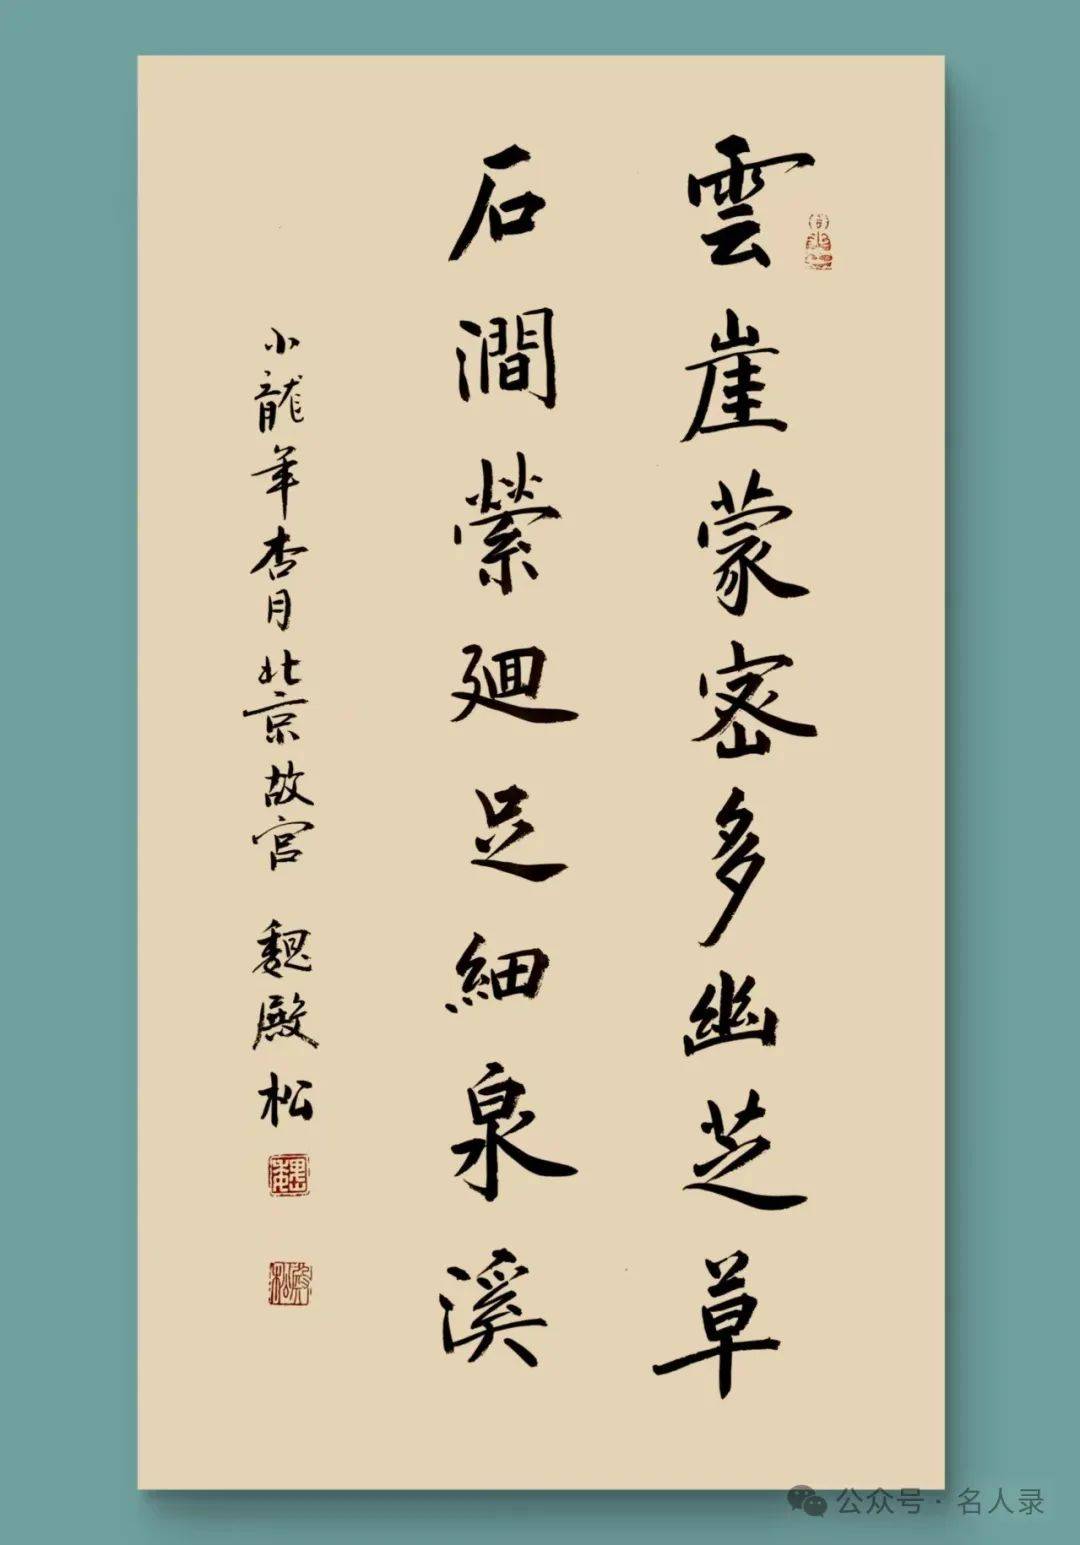 雲崖蒙密多幽芝草
石澗縈廻足細泉溪
小龍年杏月北京故宫 魏殿松
魏
殿松
公众号·名人录